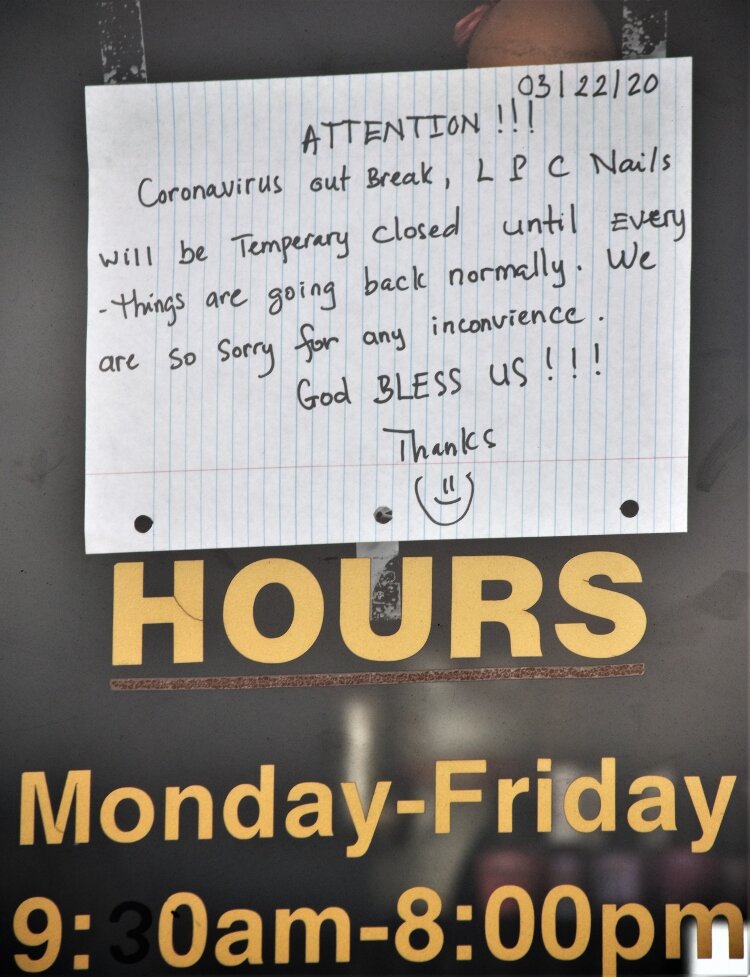 03/22/20
ATTENTION !!!
Coronavirus out Break, L P C Nails
will be Temperary closed until Every
-things are going back normally. We
are so sorry for any inconvience.
God BLESS US !!!
Thanks
HOURS
Monday-Friday
9:30am-8:00pm